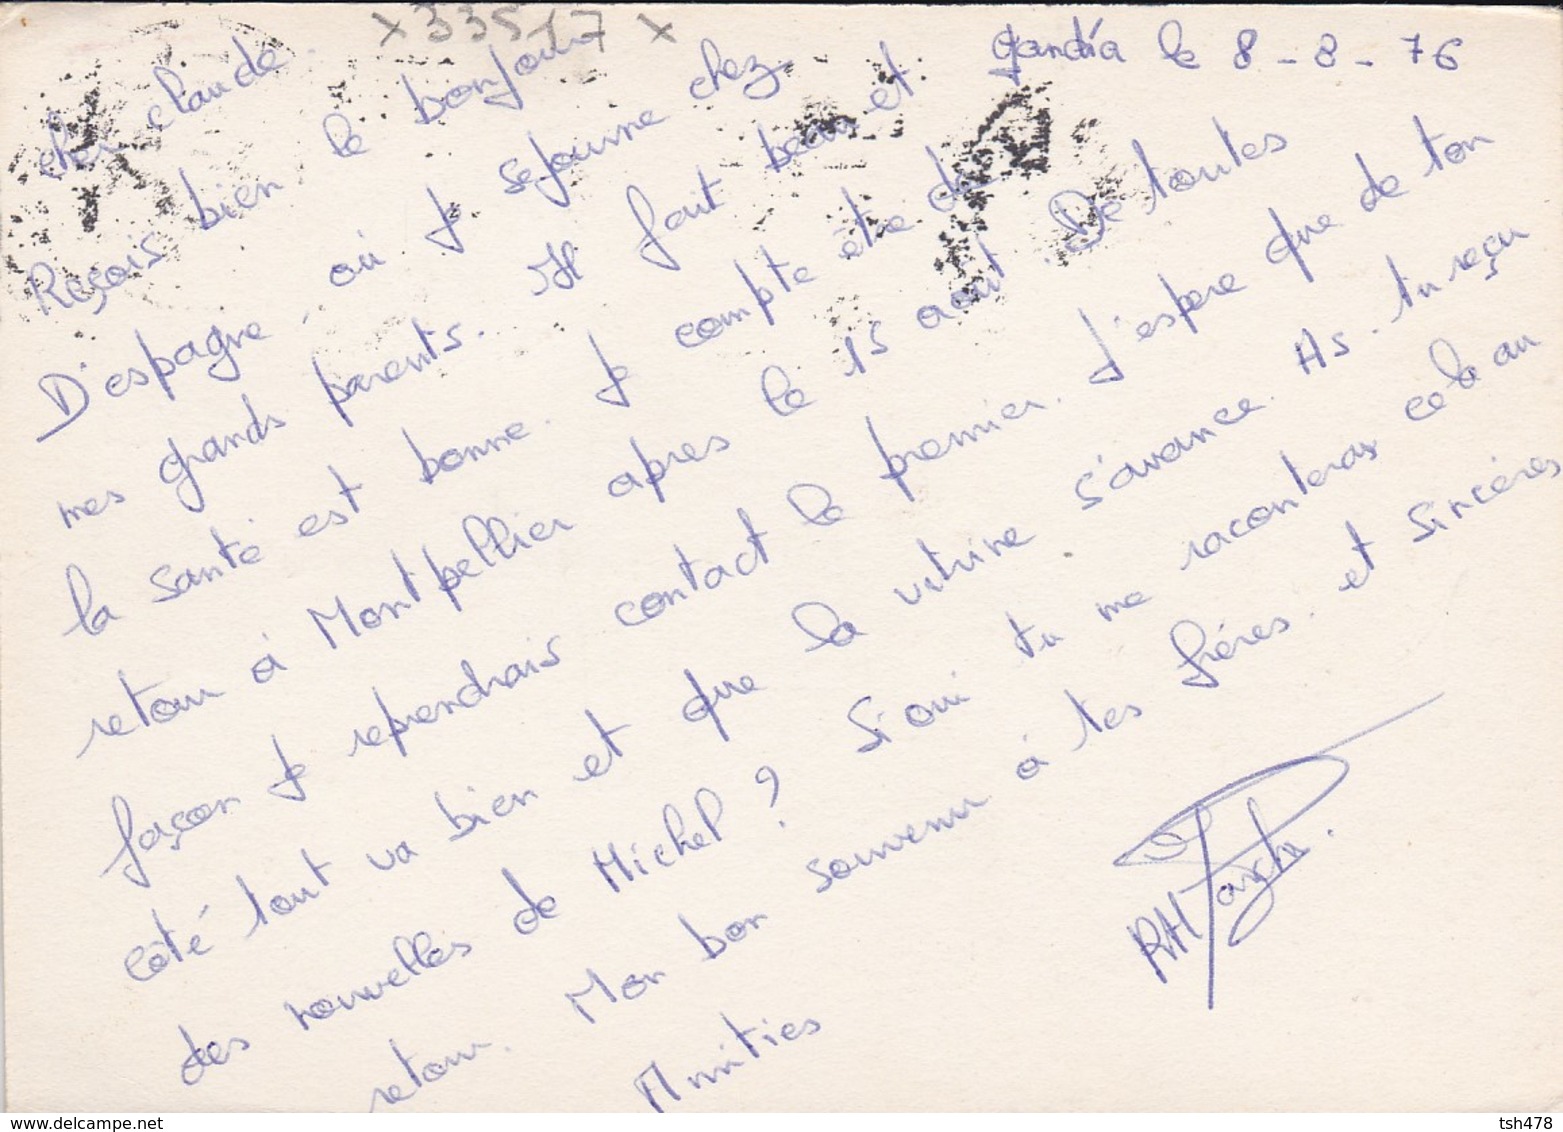 x 33517 x
Gandía le 8 - 8 - 76
cher claude.
Reçois bien le bonjour
D'espagne, où je sejourne chez
mes grands parents. Il fait beau et
la santé est bonne. Je compte être de
retour à Montpellier apres le 15 août. De toutes
façon je reprendrais contact le premier. J'espere que de ton
côté tout va bien et que la vitrine s'avance. As-tu reçu
des nouvelles de Michel ? Si oui tu me raconteras cela au
retour. Mon bon souvenir à tes fréres. et sincères
Amities
www.delcampe.net
tsh478